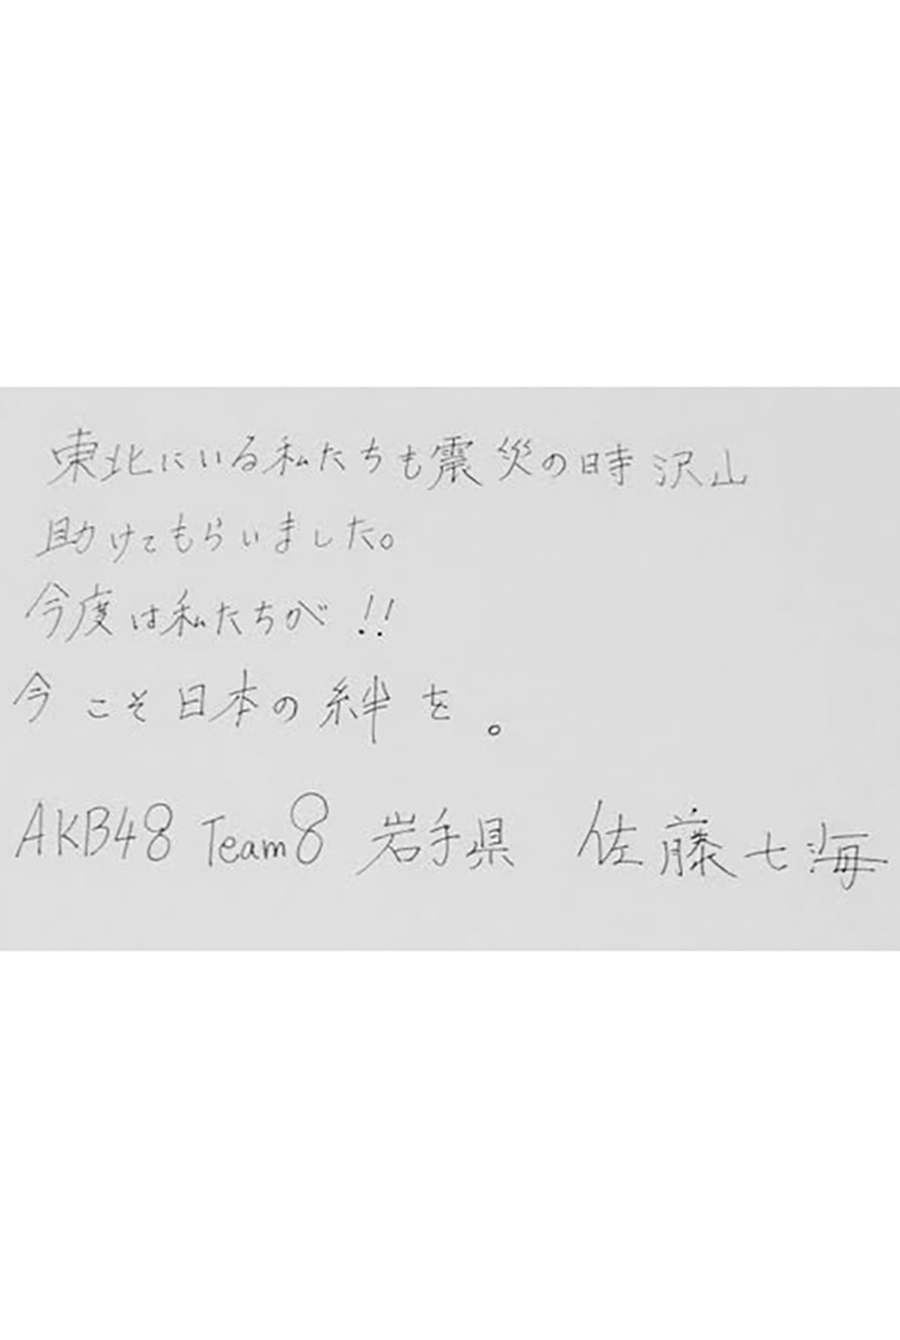 東北にいる私たちも震災の時沢山
助けてもらいました。
今度は私たちが!!
今こそ日本の絆を。
AKB48 Team8 岩手県 佐藤七海